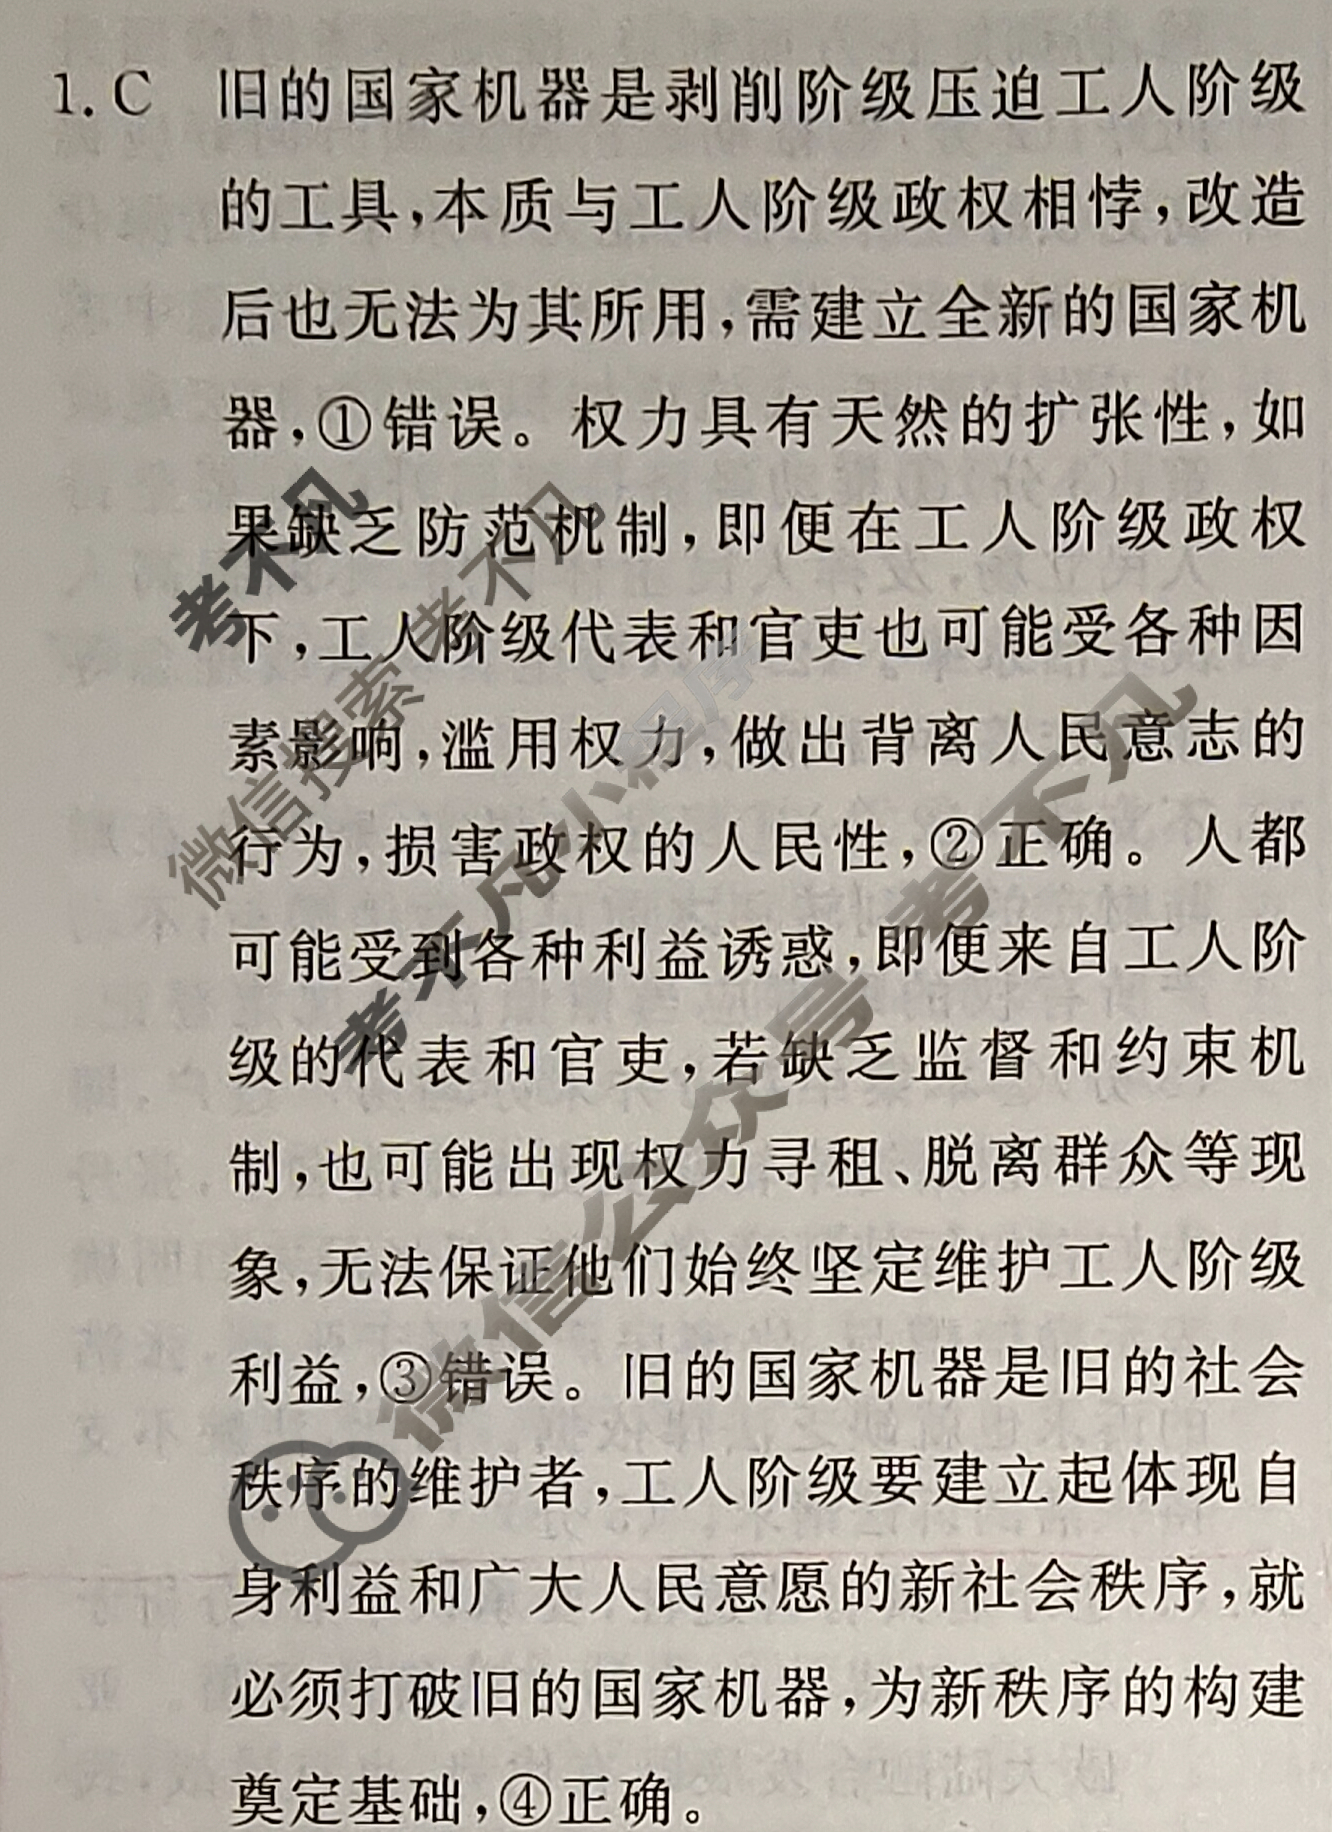 1. C 旧的国家机器是剥削阶级压迫工人阶级
的工具,本质与工人阶级政权相悖,改造
后也无法为其所用,需建立全新的国家机
器,①错误。权力具有天然的扩张性,如
果缺乏防范机制,即便在工人阶级政权
下,工人阶级代表和官吏也可能受各种因
素影响,滥用权力,做出背离人民意志的
行为,损害政权的人民性,②正确。人都
可能受到各种利益诱惑,即便来自工人阶
级的代表和官吏,若缺乏监督和约束机
制,也可能出现权力寻租、脱离群众等现
象,无法保证他们始终坚定维护工人阶级
利益,③错误。旧的国家机器是旧的社会
秩序的维护者,工人阶级要建立起体现自
身利益和广大人民意愿的新社会秩序,就
必须打破旧的国家机器,为新秩序的构建
奠定基础,④正确。
考不凡
微信搜索 考不凡
考不凡小程序
微信公众号 考不凡